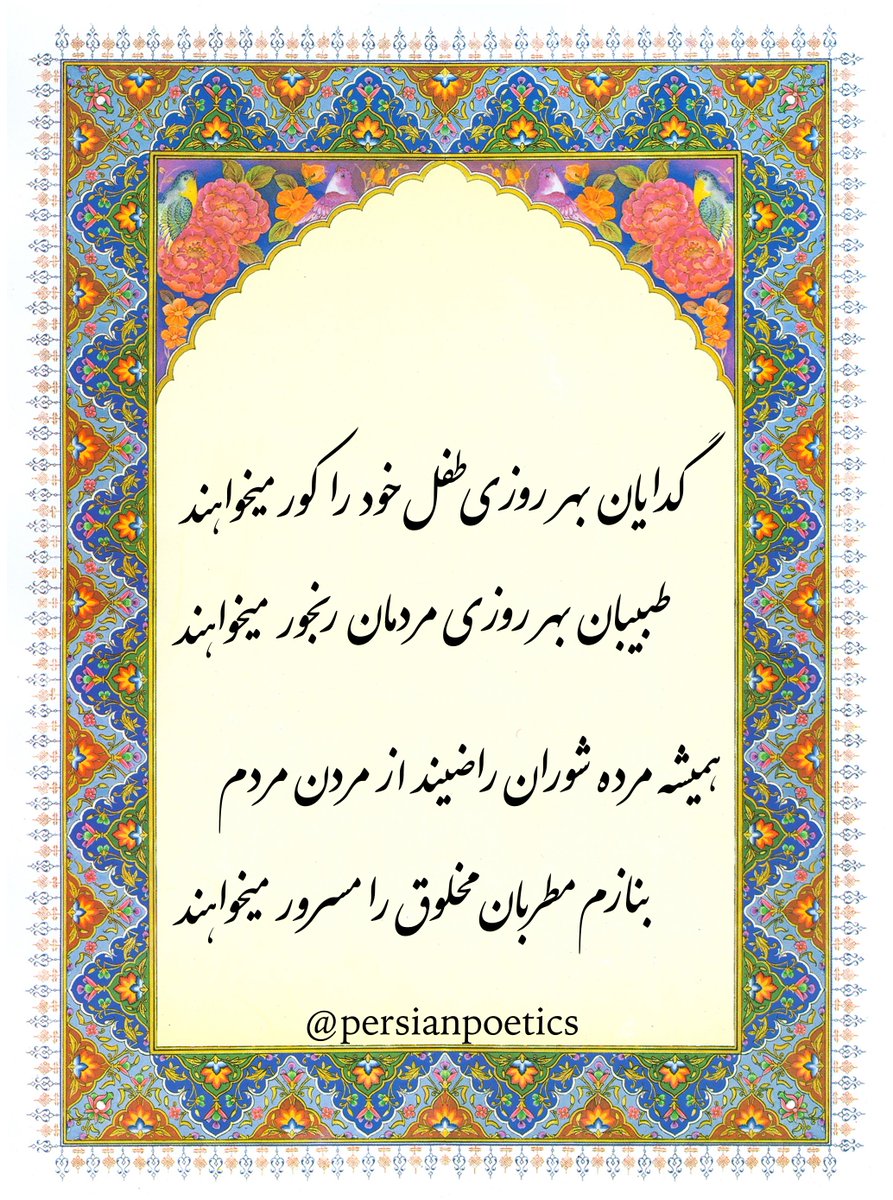 گدایان بهر روزی طفل خود را کور میخواهند
طبیبان بهر روزی مردمان رنجور میخواهند
همیشه مرده شوران راضیند از مردن مردم
بنازم مطربان مخلوق را مسرور میخواهند
@persianpoetics